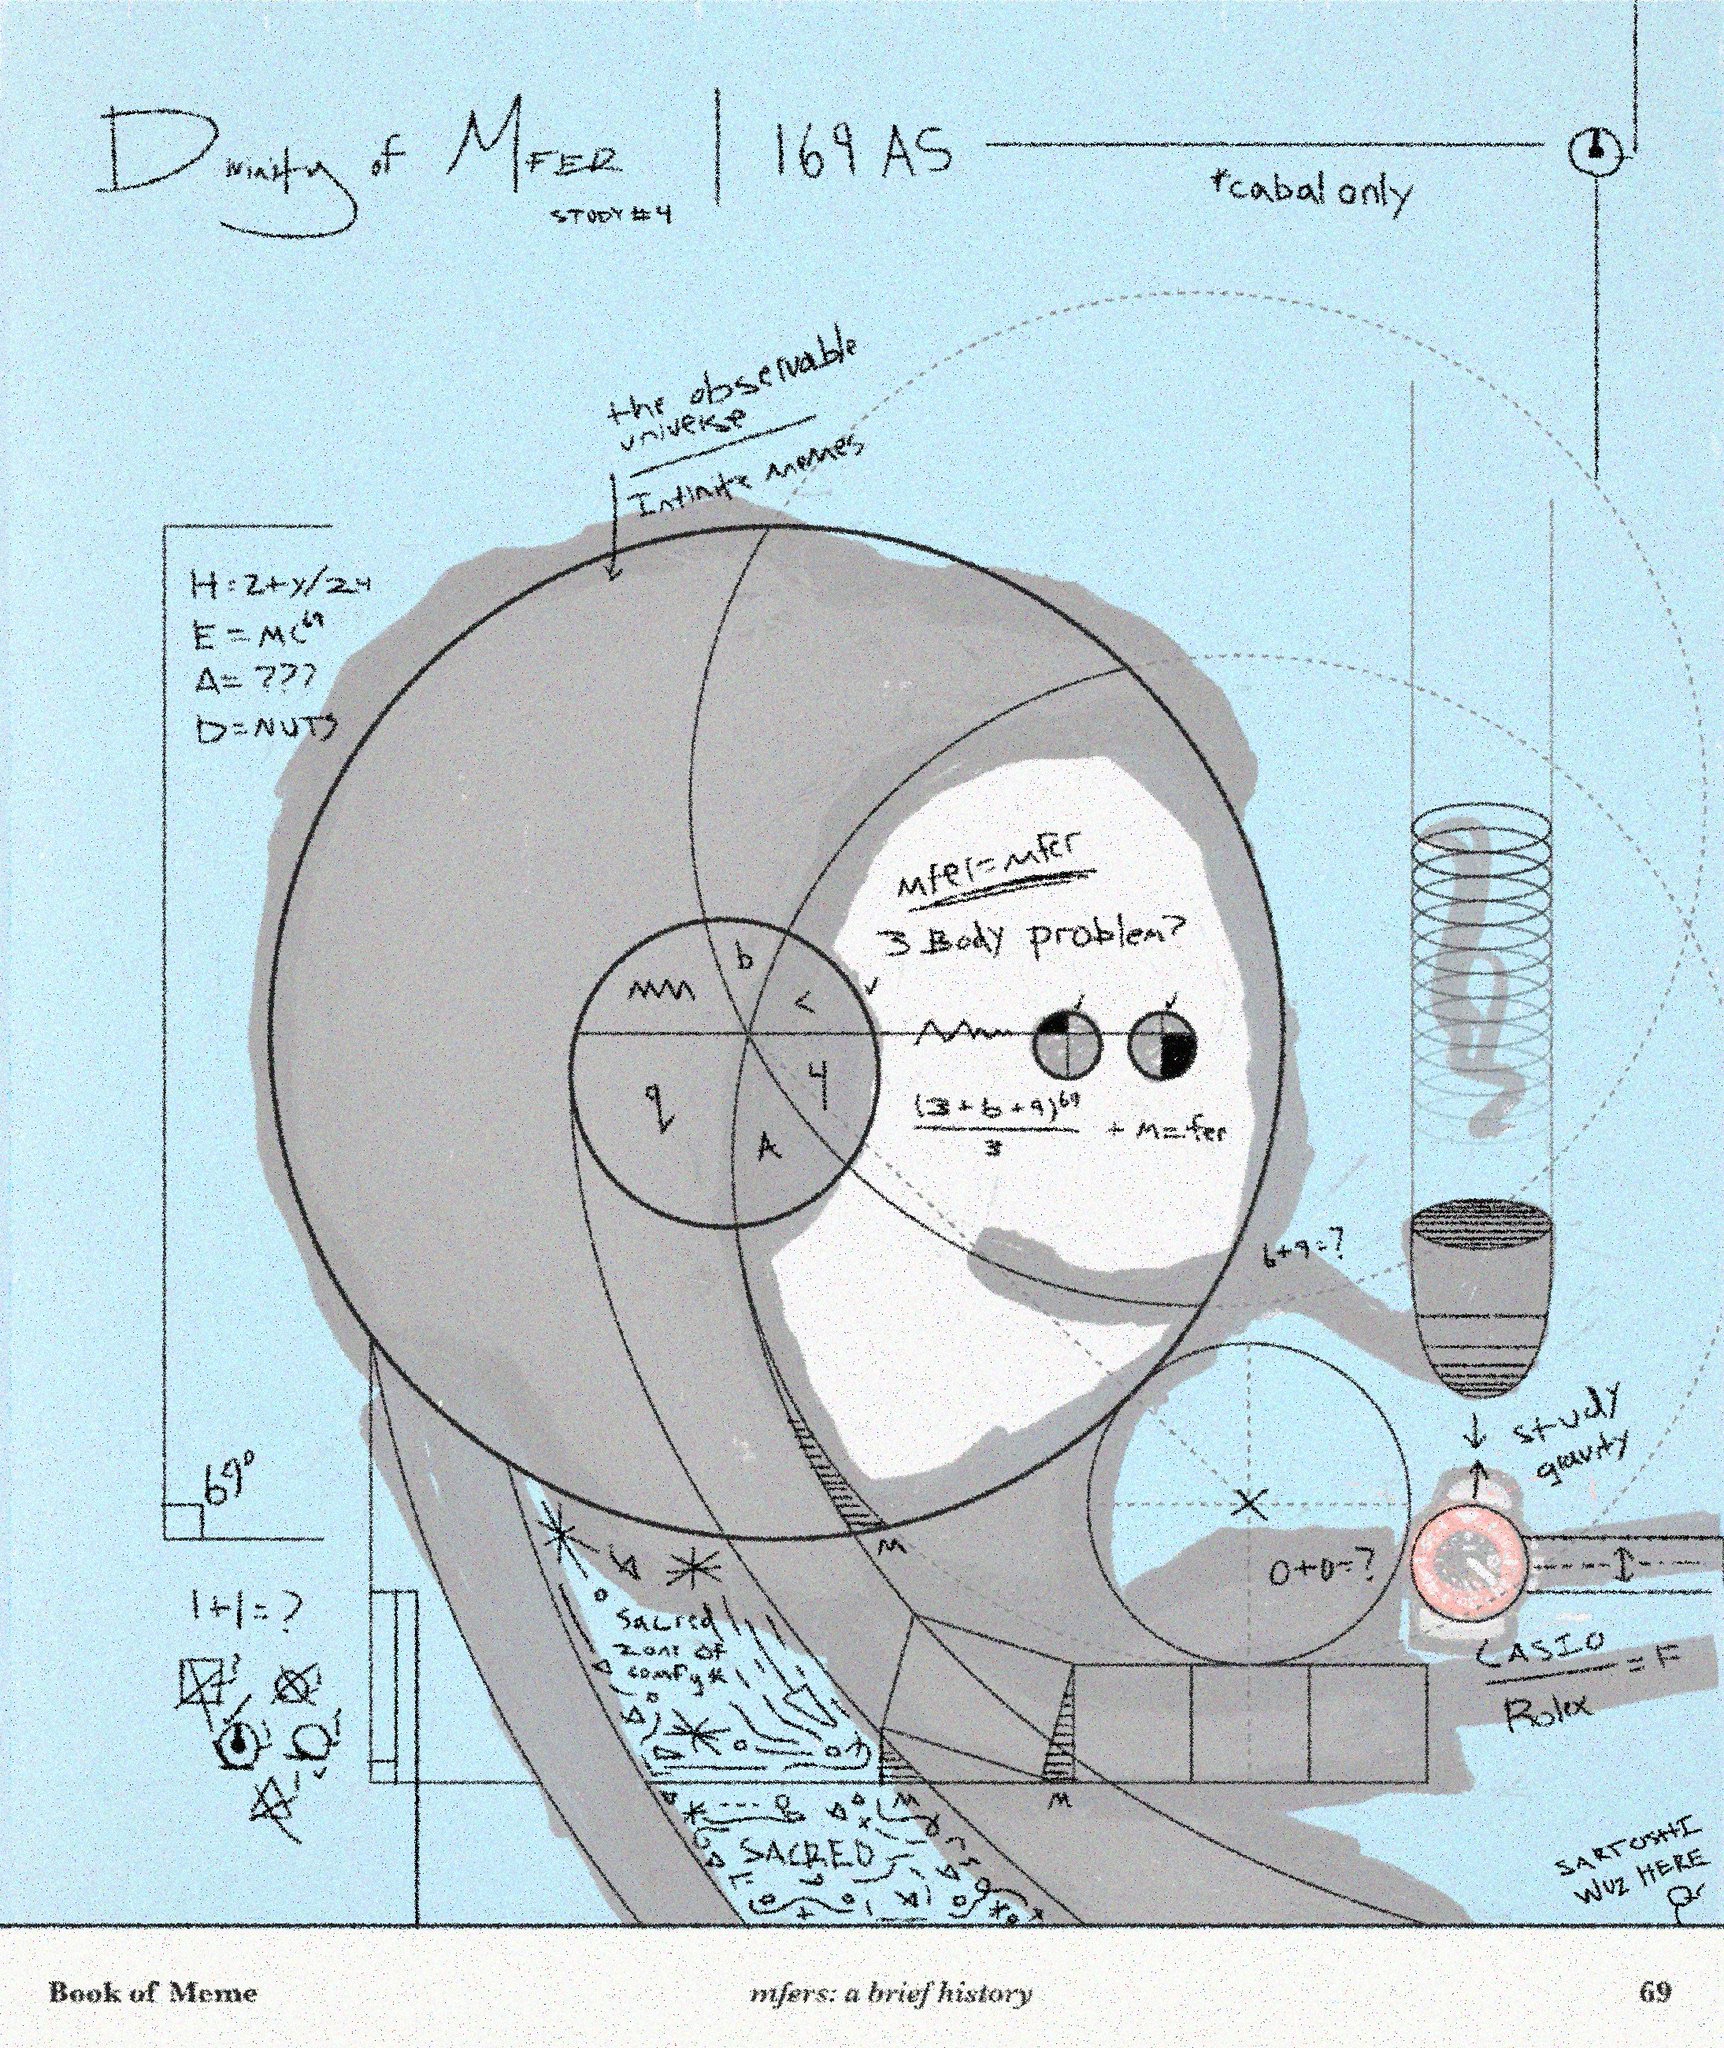 Divinity of MFER | 169 AS
STUDY #4
*cabal only
the observable
universe
Infinite memes
H=2+y/24
E=MC^69
A=???
D=NUTS
mfer=mfer
3 Body problem?
b
<
4
A
q
(3+b+9)^69
3
+ m=fer
6+9=?
study
gravity
69°
M
0+0=?
1+1=?
sacred
zone of
comfy*
CASIO
Rolex
=F
M
M
SACRED
SARTOSHI
WUZ HERE
Book of Meme
mfers: a brief history
69